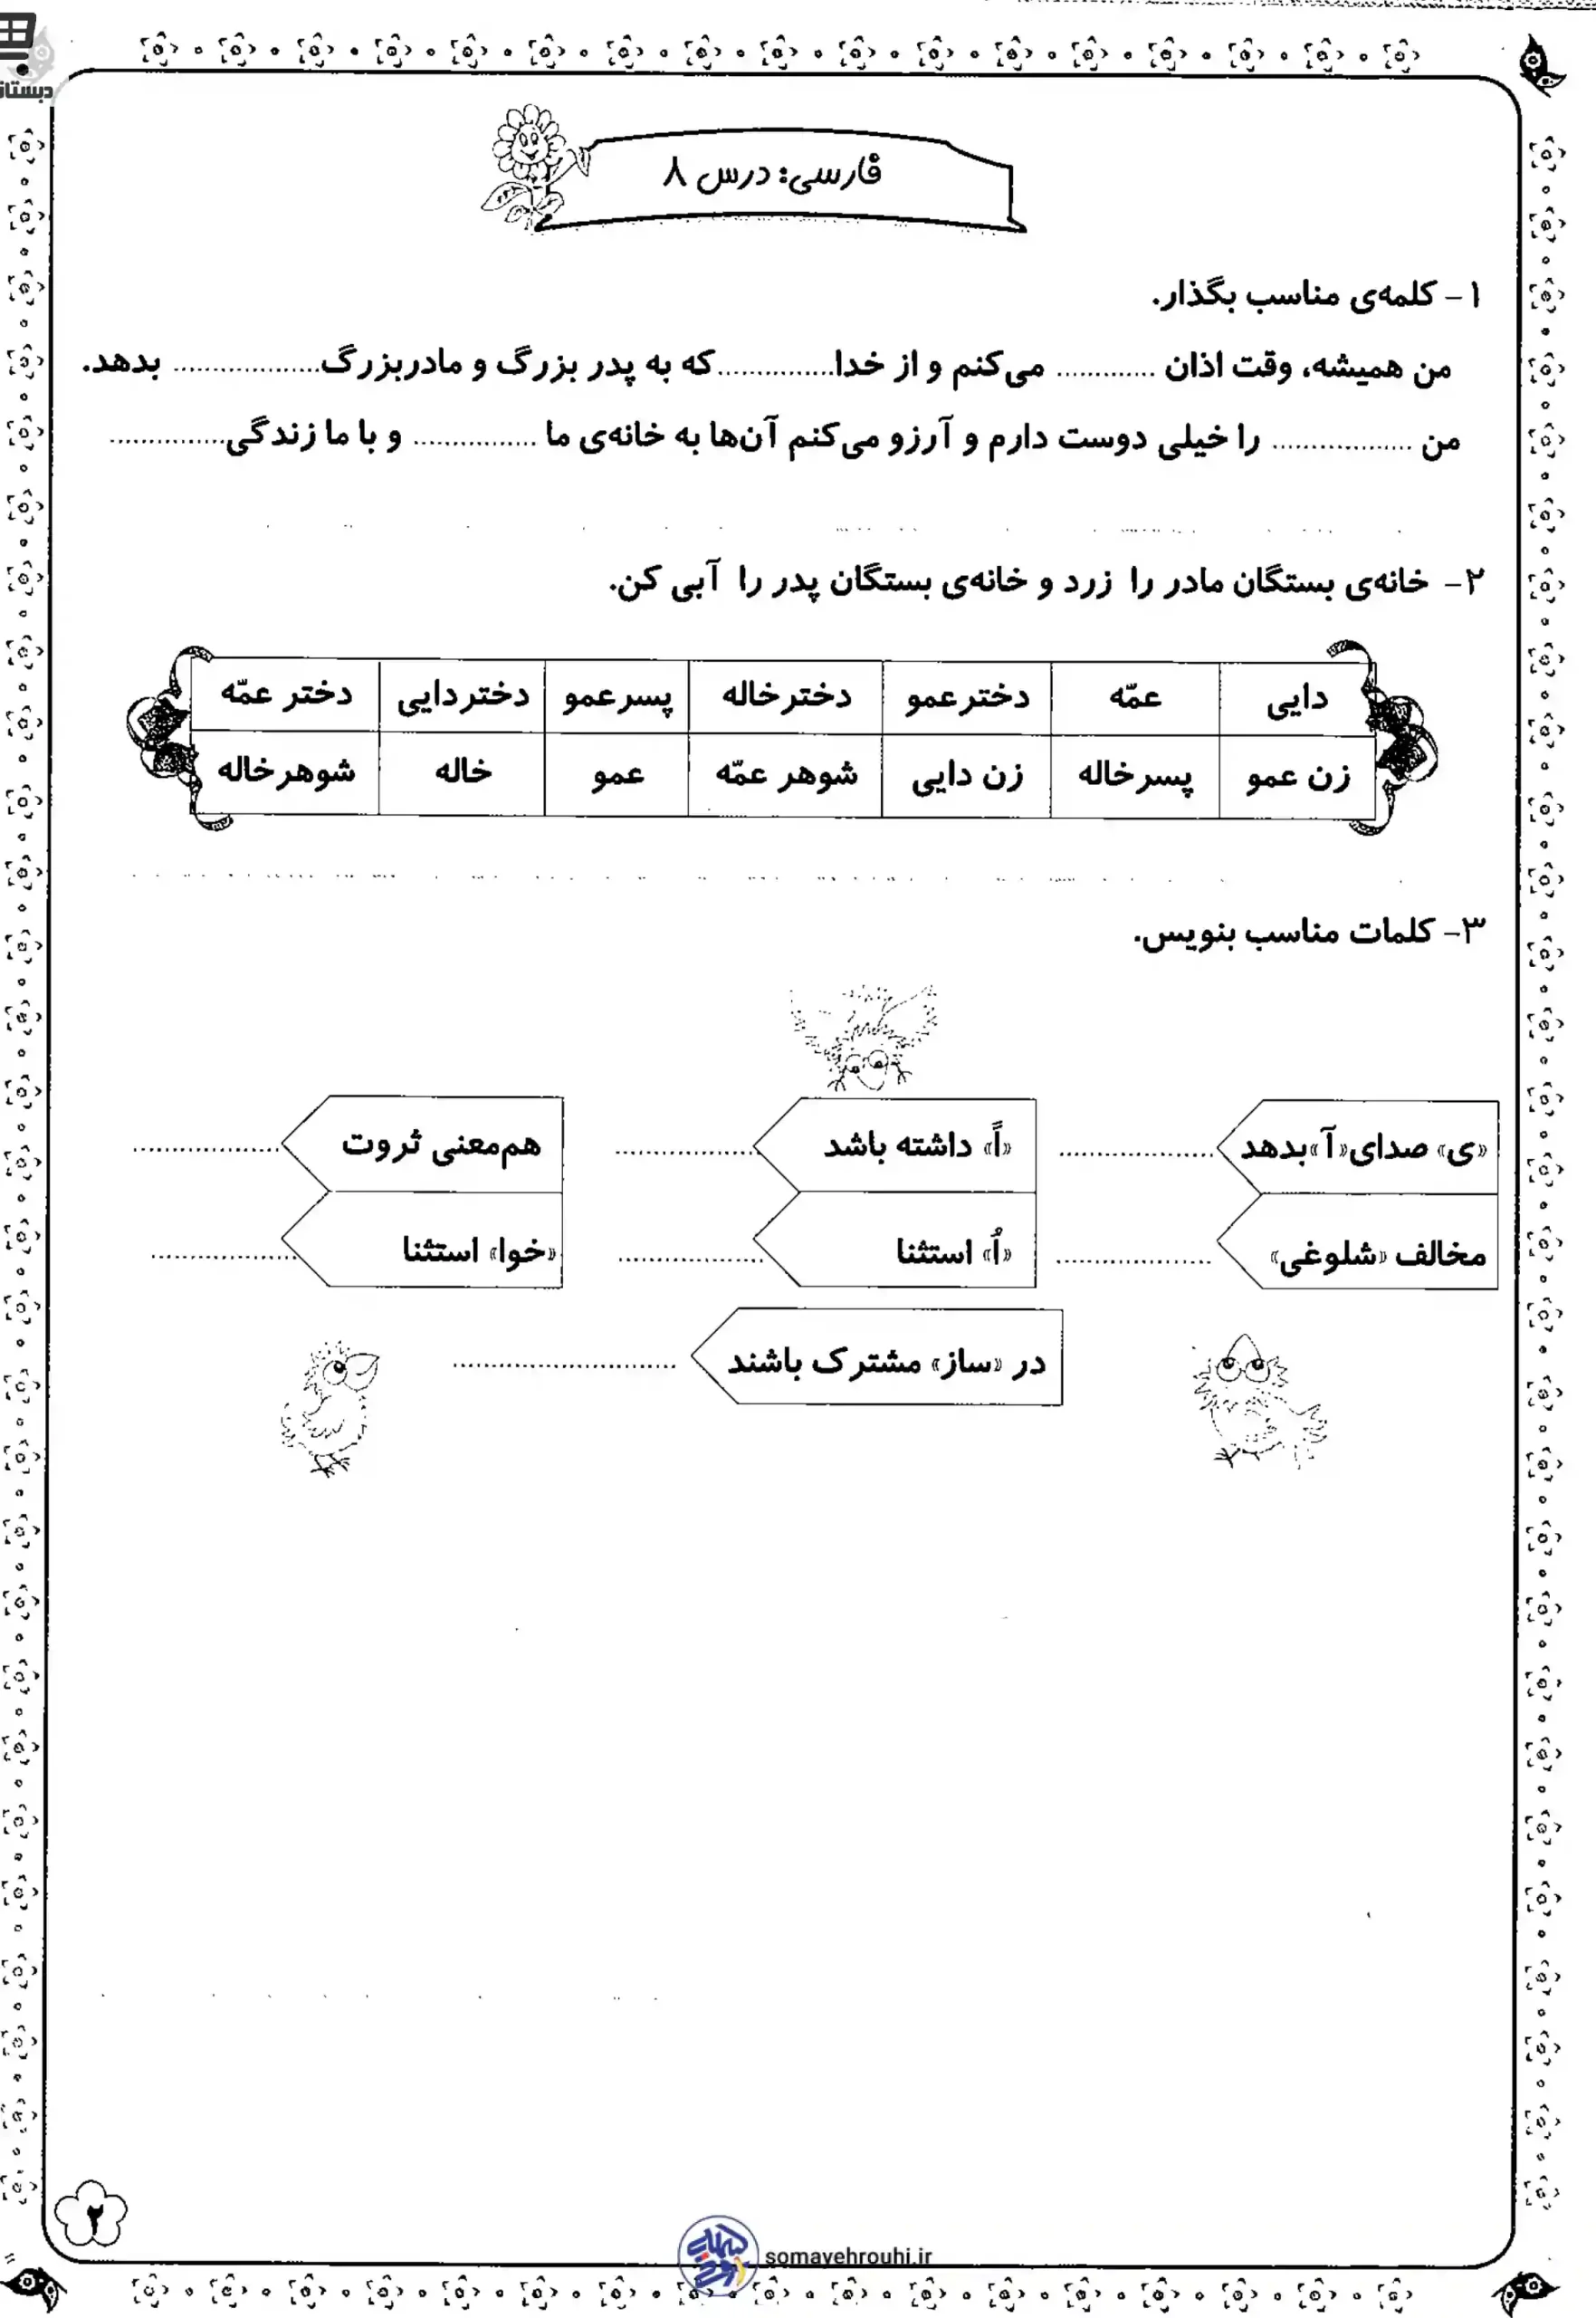 دبستان
فارسی: درس ۸
۱- کلمه‌ی مناسب بگذار.
من همیشه، وقت اذان ............. می‌کنم و از خدا...............که به پدر بزرگ و مادربزرگ................... بدهد.
من .................. را خیلی دوست دارم و آرزو می‌کنم آن‌ها به خانه‌ی ما ................ و با ما زندگی...............
۲- خانه‌ی بستگان مادر را زرد و خانه‌ی بستگان پدر را آبی کن.
دایی عمّه دخترعمو دخترخاله پسرعمو دختردایی دختر عمّه
زن عمو پسرخاله زن دایی شوهر عمّه عمو خاله شوهرخاله
۳- کلمات مناسب بنویس.
«ی» صدای«آ»بدهد .................... «اً» داشته باشد .................. هم‌معنی ثروت ...................
مخالف «شلوغی» .................... «اُ» استثنا ................... «خوا» استثنا ...................
در «ساز» مشترک باشند .............................
۲
کهربای روحی
somayehrouhi.ir